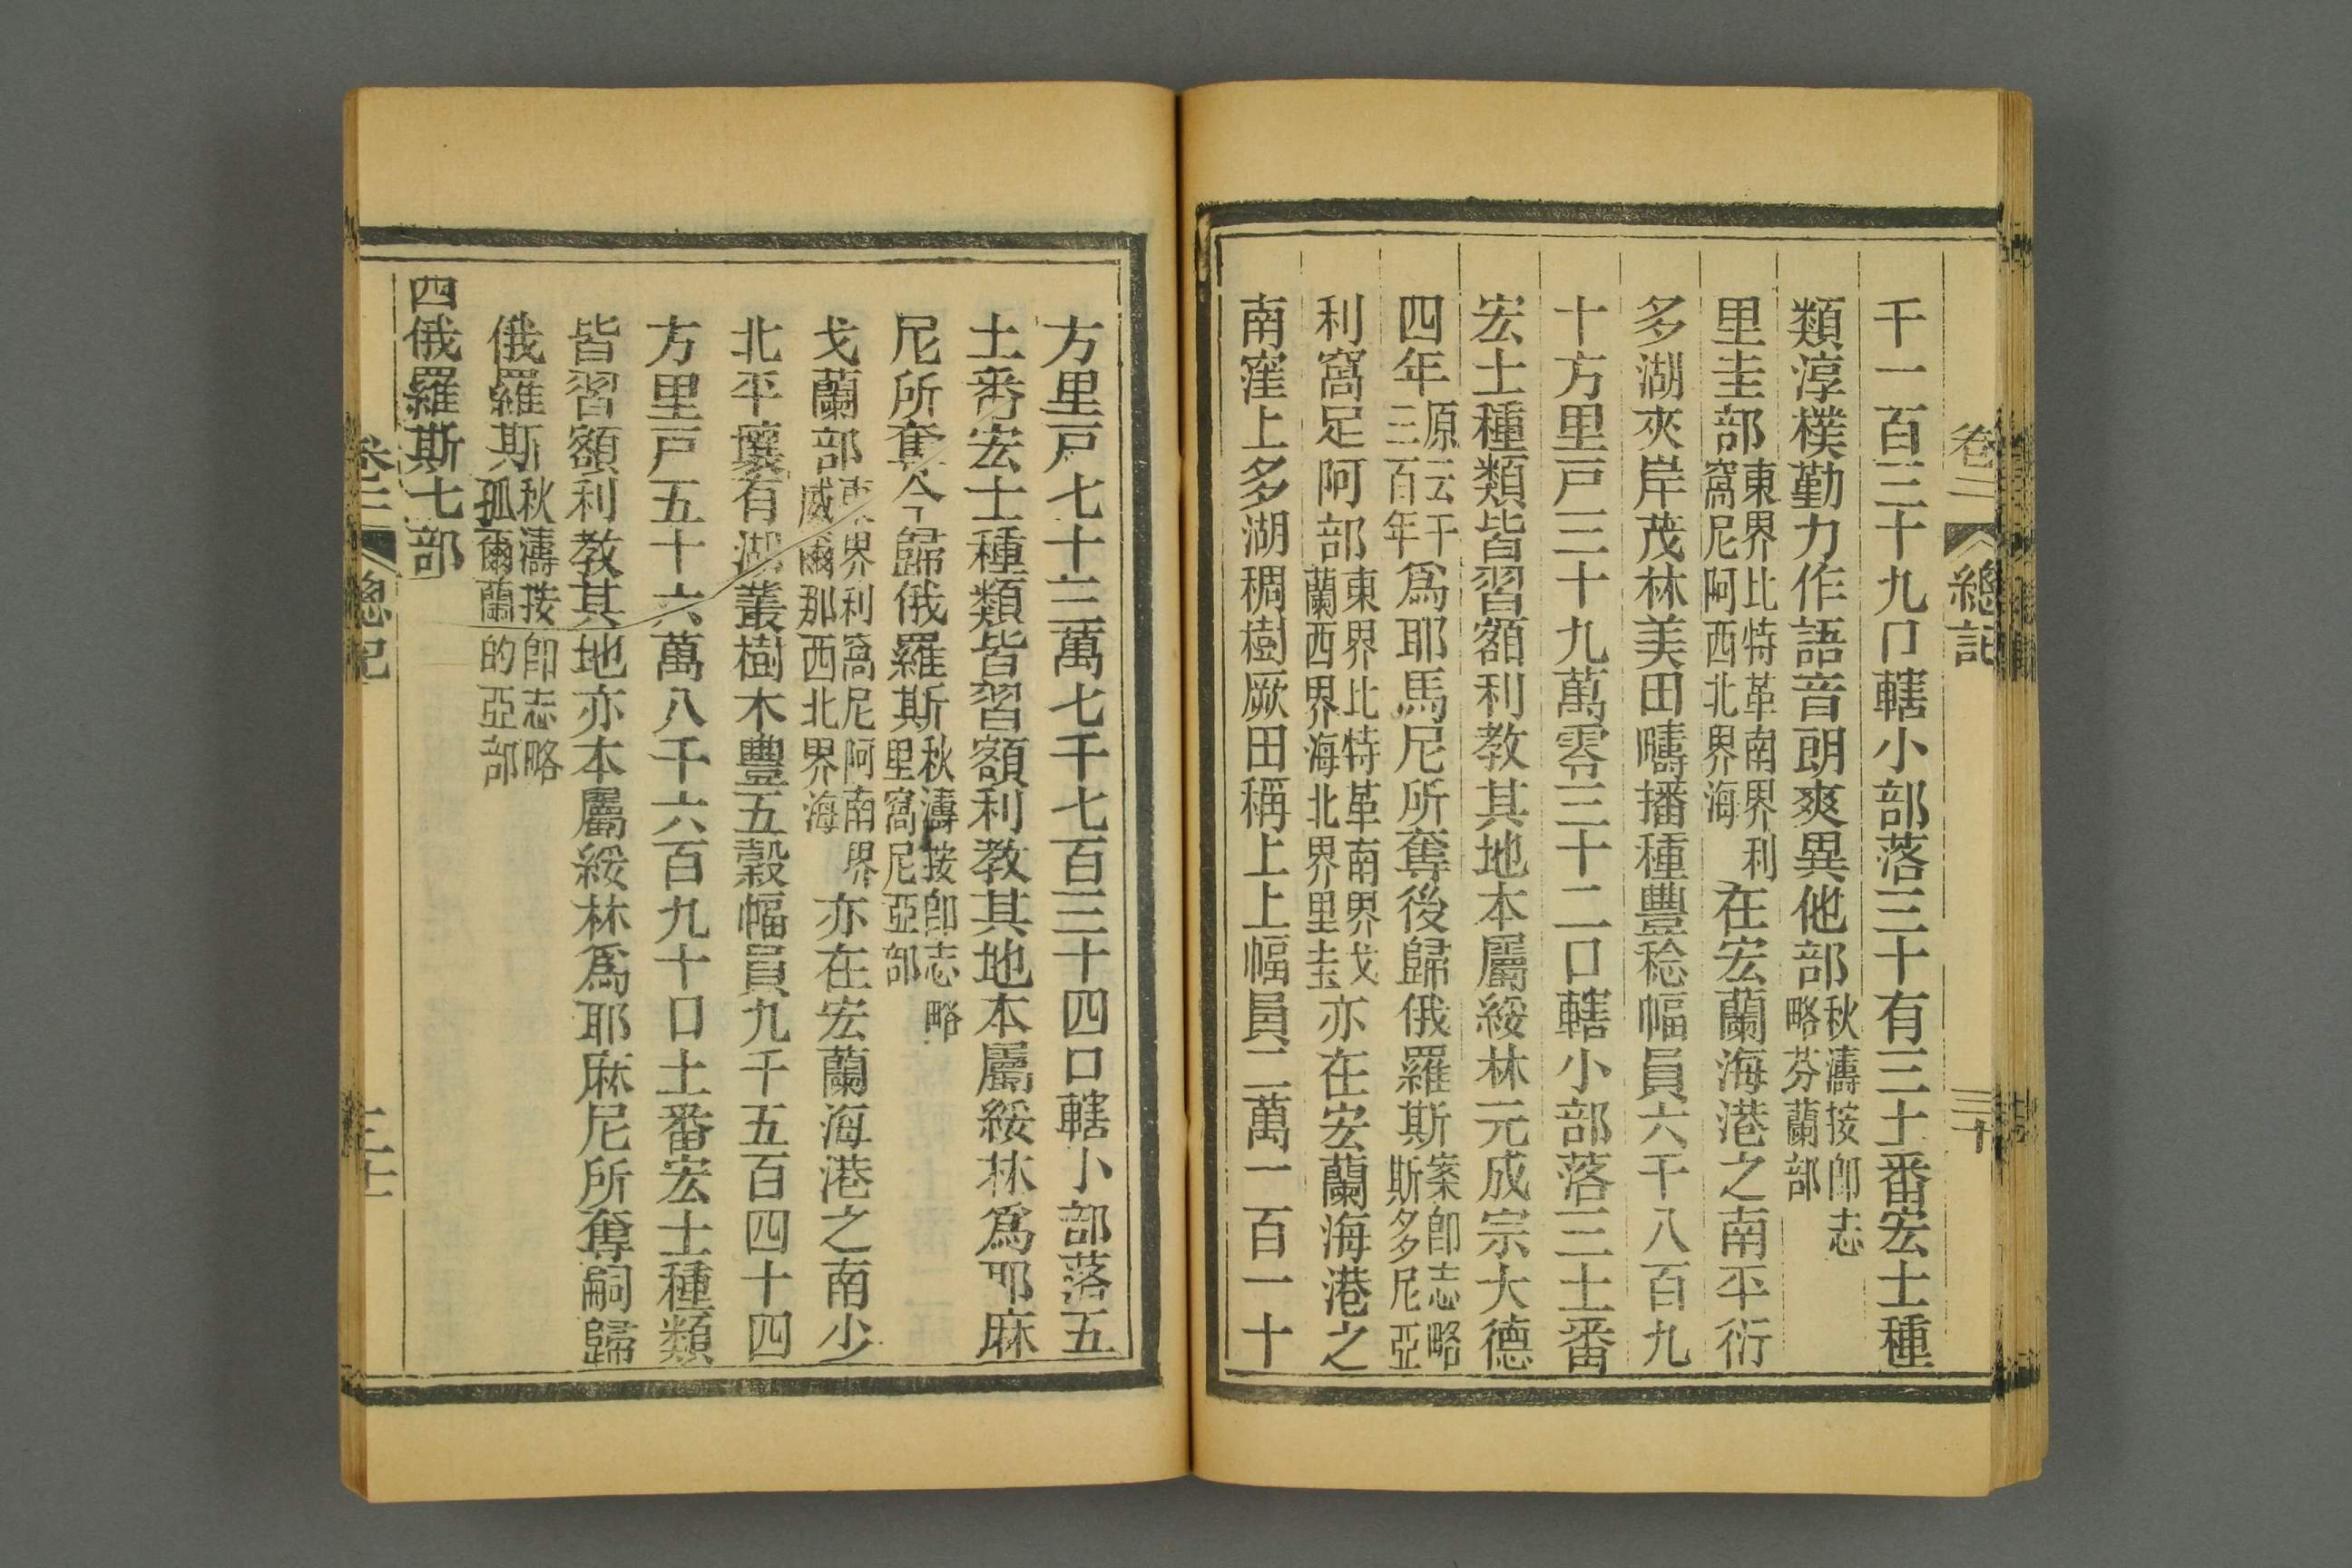 卷二 總記 三十
千一百三十九口轄小部落三十有三土番宏士種
類淳樸勤力作語音朗爽異他部秋濤按卽志略芬蘭部
里圭部東界比特革南界利窩尼阿西北界海在宏蘭海港之南平衍
多湖夾岸茂林美田疇播種豐稔幅員六千八百九
十方里戸三十九萬零三十二口轄小部落三土番
宏士種類皆習額利教其地本屬綏林元成宗大德
四年原云千三百年爲耶馬尼所奪後歸俄羅斯案卽志略斯多尼亞
利窩足阿部東界比特革南界戈蘭西界海北界里圭亦在宏蘭海港之
南窪上多湖稠樹厥田稱上上幅員二萬一百一十
方里戸七十三萬七千七百三十四口轄小部落五
土番宏士種類皆習額利教其地本屬綏林爲耶麻
尼所奪今歸俄羅斯秋濤按卽志略里窩尼亞部
戈蘭部東界利窩尼阿南界威爾那西北界海亦在宏蘭海港之南少
北平壤有湖叢樹木豐五穀幅員九千五百四十四
方里戸五十六萬八千六百九十口土番宏士種類
皆習額利教其地亦本屬綏林爲耶麻尼所奪嗣歸
俄羅斯秋濤按卽志略孤爾蘭的亞部
四俄羅斯七部
總記